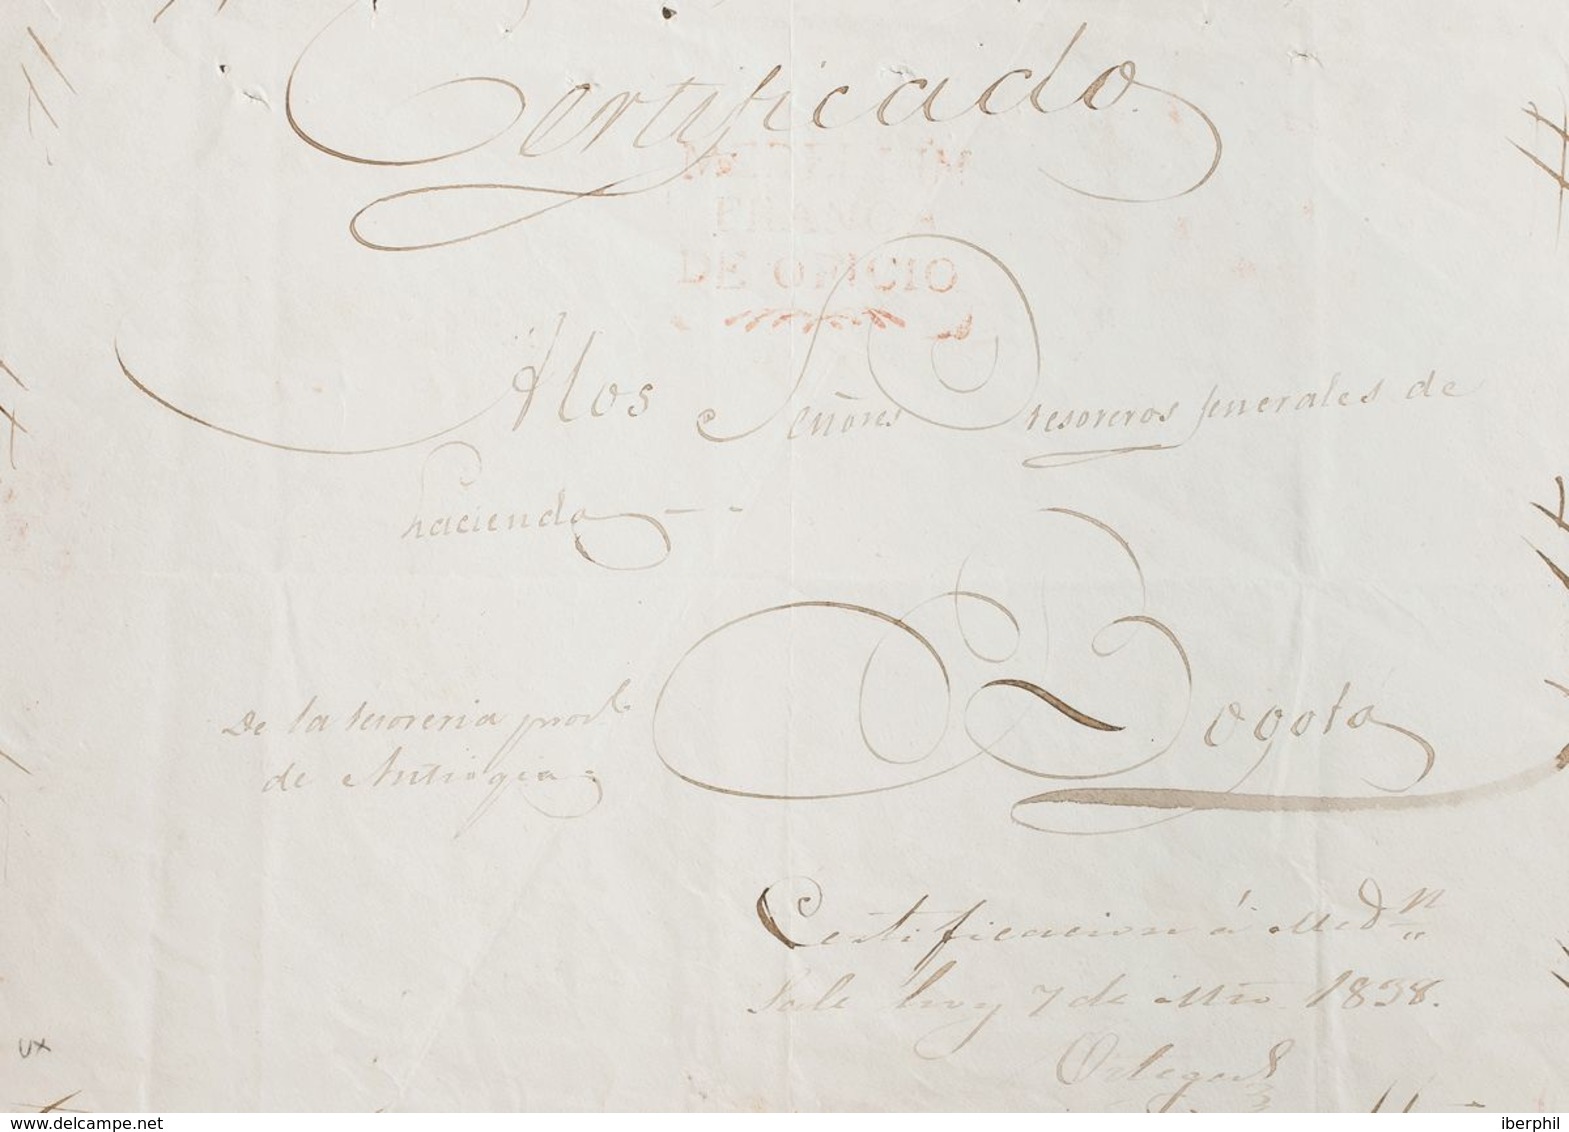 Certificado
MEDELLIN
FRANCA
DE OFICIO
A los Señores tesoreros jenerales de
hacienda
Bogotá
De la tesoreria provl
de Antioqia
Certificacion á Medn
Sale hoy 7 de 1838.
delcampe.net
iberphil